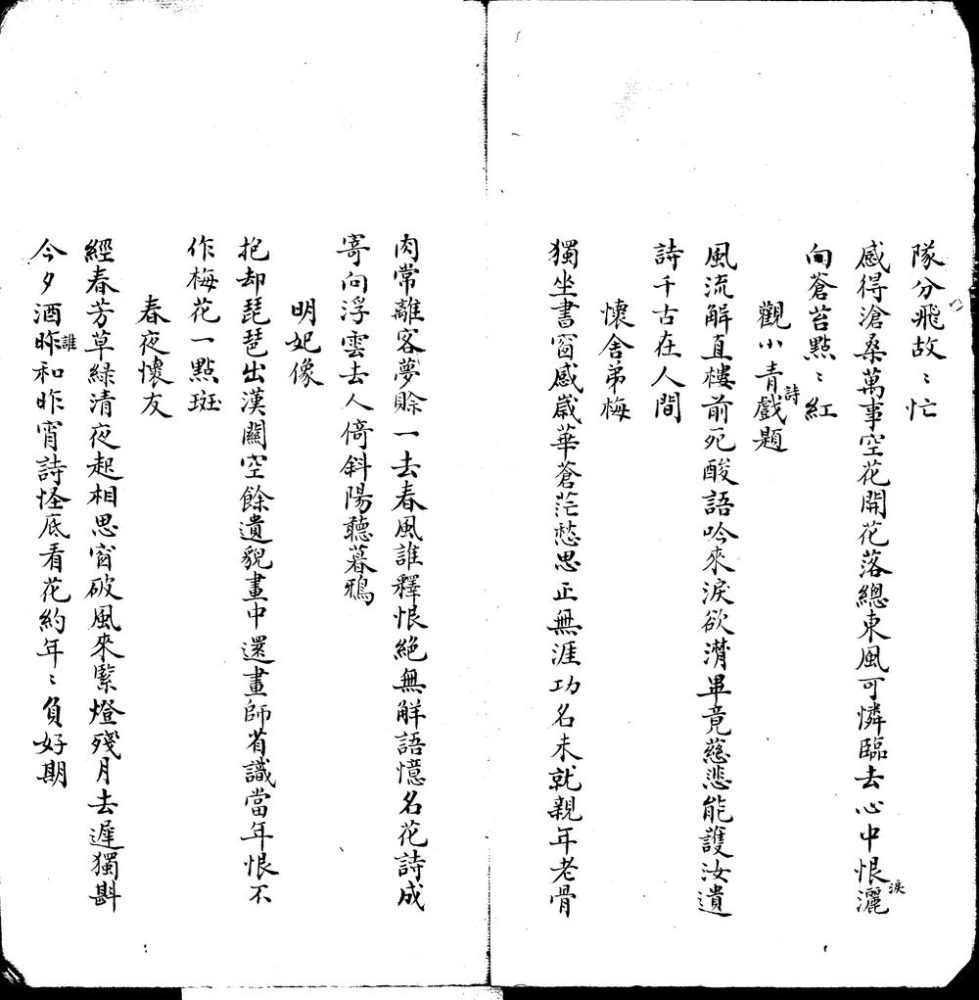 隊分飛故〻忙
感得滄桑萬事空花開花落總東風可憐臨去心中恨灑淚
向蒼苔點〻紅
觀小青詩戲題
風流解直樓前死酸語吟來淚欲潸畢竟慈悲能護汝遺
詩千古在人間
懷舍弟梅
獨坐書窗感歲華蒼茫愁思正無涯功名未就親年老骨
肉常離客夢賒一去春風誰釋恨絕無解語憶名花詩成
寄向浮雲去人倚斜陽聽暮鴉
明妃像
抱却琵琶出漢關空餘遺貌畫中還畫師省識當年恨不
作梅花一點斑
春夜懷友
經春芳草綠清夜起相思窗破風來緊燈殘月去遲獨斟
今夕酒誰和昨宵詩怪底看花約年〻負好期